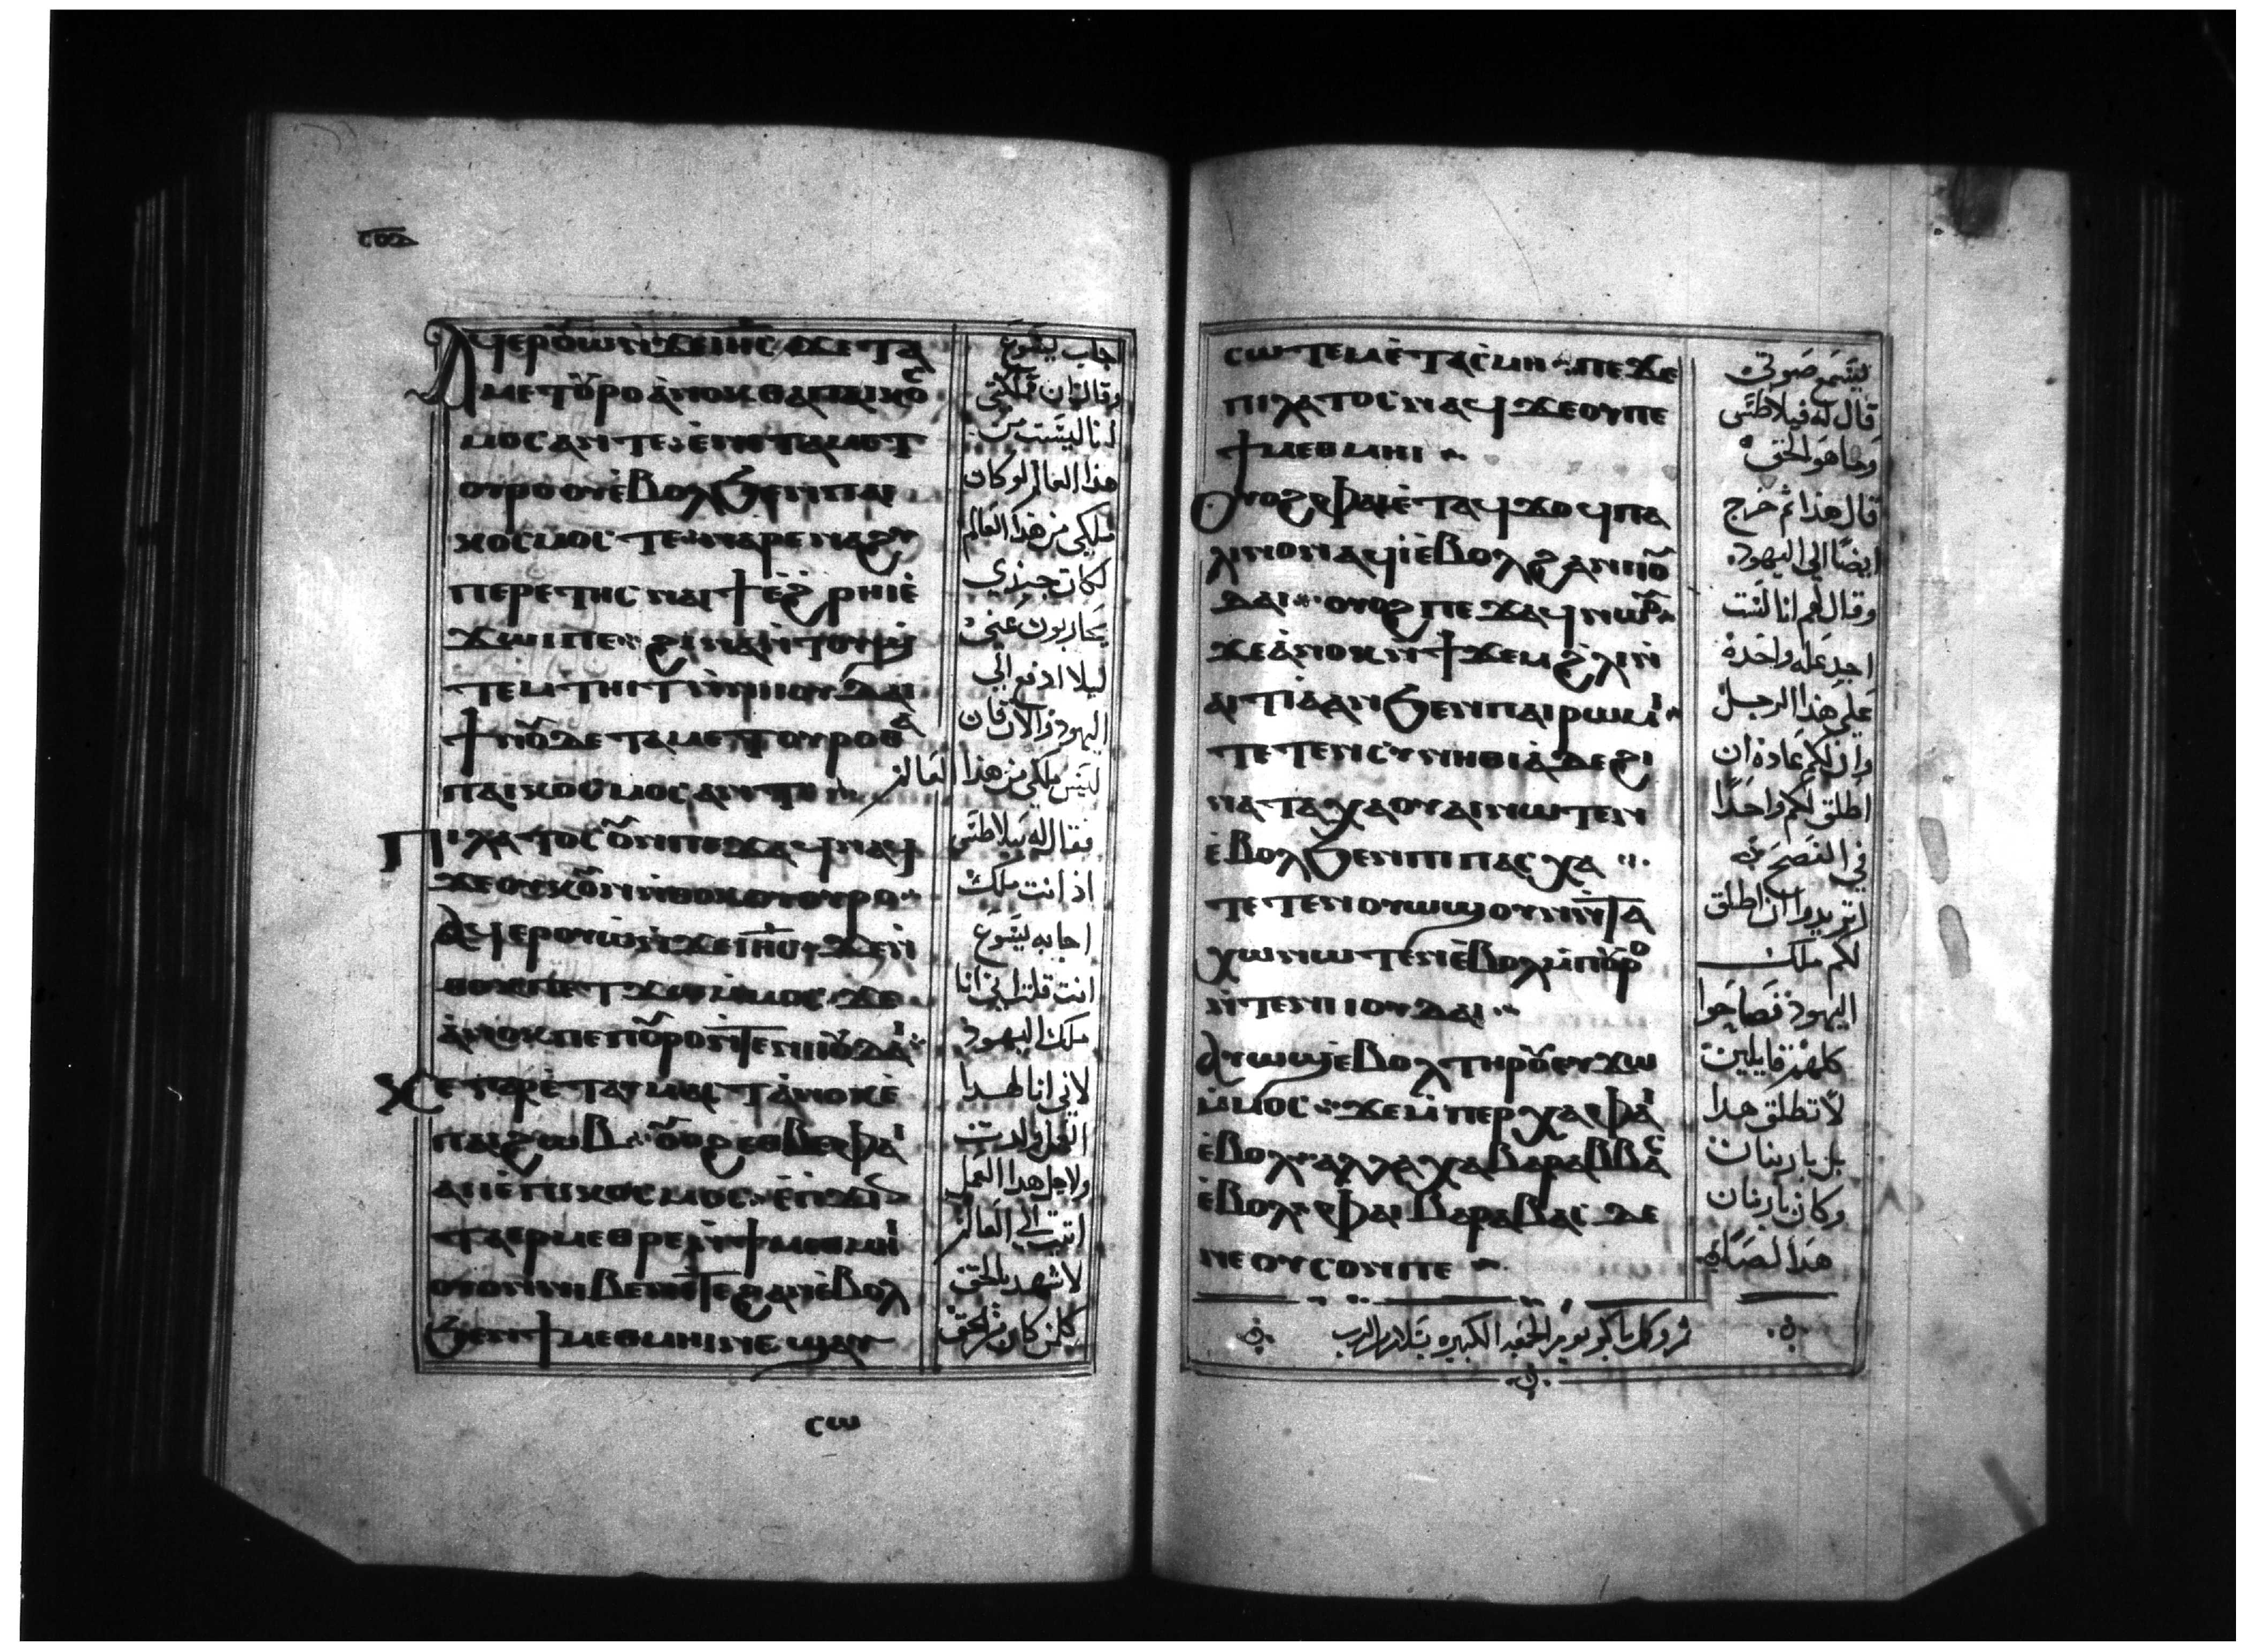 ⲁϥⲉⲣⲟⲩⲱ ⲛ̀ϫⲉ ⲓⲏⲥ ϫⲉ ⲧⲁ
ⲙⲉⲧⲟⲩⲣⲟ ⲁⲛⲟⲕ ⲑⲁ ⲡⲁⲓⲕⲟⲥ
ⲙⲟⲥ ⲁⲛ ⲧⲉ ⲉⲛⲉ ⲧⲁⲙⲉⲧ
ⲟⲩⲣⲟ ⲟⲩⲉ̀ⲃⲟⲗ ϧⲉⲛ ⲡⲁⲓ
ⲕⲟⲥⲙⲟⲥ ⲧⲉ ⲛⲁⲣⲉ ⲛⲁϩⲩ
ⲡⲉⲣⲉⲧⲏⲥ ⲛⲁϯ ⲉϩⲣⲏⲓ ⲉ̀
ϫⲱⲓ ⲡⲉ ϩⲓⲛⲁ ⲛ̀ⲧⲟⲩϣ
ⲧⲉⲙⲧⲏⲓⲧ ⲛ̀ⲛⲓⲓⲟⲩⲇⲁⲓ
ϯⲛⲟⲩ ⲇⲉ ⲧⲁⲙⲉⲧⲟⲩⲣⲟ ⲑⲁ
ⲡⲁⲓⲕⲟⲥⲙⲟⲥ ⲁⲛ ⲧⲉ
ⲡⲓⲗⲁⲧⲟⲥ ⲟⲩⲛ ⲡⲉϫⲁϥ ⲛⲁϥ
ϫⲉ ⲟⲩⲕⲟⲩⲛ ⲛ̀ⲑⲟⲕ ⲟⲩⲟⲩⲣⲟ
ⲁϥⲉⲣⲟⲩⲱ ⲛ̀ϫⲉ ⲓⲏⲥ ϫⲉ ⲛ̀
ⲑⲟⲕ ⲡⲉⲧϫⲱ ⲙ̀ⲙⲟⲥ ϫⲉ
ⲁ̀ⲛⲟⲕ ⲡⲉ ⲡⲟⲩⲣⲟ ⲛ̀ⲧⲉ ⲛⲓⲓⲟⲩⲇⲁⲓ
ϫⲉ ⲉⲧⲁⲩⲙⲁⲥⲧ ⲁ̀ⲛⲟⲕ ⲉ̀
ⲡⲁⲓϩⲱⲃ ⲟⲩⲟϩ ⲉⲑⲃⲉ ⲫⲁⲓ
ⲁⲓⲓ̀ ⲉ̀ⲡⲓⲕⲟⲥⲙⲟⲥ
ⲧⲁⲉⲣⲙⲉⲑⲣⲉ ⲛ̀ϯⲙⲉⲑⲙⲏⲓ
ⲟⲩⲟⲛ ⲛⲓⲃⲉⲛ ⲉⲧⲉ ϩⲁⲛⲉ̀ⲃⲟⲗ
ϧⲉⲛ ϯⲙⲉⲑⲙⲏⲓ ⲛⲉ ϣⲁⲩ
ⲥⲱ
اجاب يسوع
وقال ان مملكتي
انا ليست من
هذا العالم لو كان
ملكي من هذا العالم
لكان جندي
يحاربون عني
ليلا ادفع الى
اليهود والان فان
ليس ملكي من هذا العالم
فقال له بيلاطس
اذ انت ملك
اجابه يسوع
انت قلت اني انا
ملك اليهود
لاني انا لهدا
الفعل ولدت
ولاجل هدا العمل
اتيت الى العالم
لاشهد بالحق
كلمن كان من الحق
ⲥⲱⲧⲉⲙ ⲉ̀ⲧⲁⲥⲙⲏ ⲡⲉϫⲉ
ⲡⲓⲗⲁⲧⲟⲥ ⲛⲁϥ ϫⲉ ⲟⲩ ⲡⲉ
ϯⲙⲉⲑⲙⲏⲓ
ⲟⲩⲟϩ ⲫⲁⲓ ⲉ̀ⲧⲁϥϫⲟϥ ⲡⲁ
ⲗⲓⲛ ⲟⲛ ⲁϥⲓ̀ ⲉ̀ⲃⲟⲗ ϩⲁ ⲛⲓⲓⲟⲩ
ⲇⲁⲓ ⲟⲩⲟϩ ⲡⲉϫⲁϥ ⲛⲱⲟⲩ
ϫⲉ ⲁ̀ⲛⲟⲕ ⲛ̀ϯϫⲉⲙ ϩ̀ⲗⲓ ⲛ̀
ⲁⲓⲧⲓⲁ̀ ⲁⲛ ϧⲉⲛ ⲡⲁⲓⲣⲱⲙⲓ
ⲧⲉⲧⲉⲛⲥⲩⲛⲏⲑⲓⲁ̀ ⲇⲉ ϩⲓ
ⲛⲁ ⲧⲁⲭⲁ ⲟⲩⲁⲓ ⲛⲱⲧⲉⲛ
ⲉ̀ⲃⲟⲗ ϧⲉⲛ ⲡⲓⲡⲁⲥⲭⲁ
ⲧⲉⲧⲉⲛⲟⲩⲱϣ ⲟⲩⲛ ⲛ̀ⲧⲁ
ⲭⲱ ⲛⲱⲧⲉⲛ ⲉ̀ⲃⲟⲗ ⲙ̀ⲡⲟⲩⲣⲟ
ⲛ̀ⲧⲉ ⲛⲓⲓⲟⲩⲇⲁⲓ
ⲁⲩⲱϣ ⲉ̀ⲃⲟⲗ ⲧⲏⲣⲟⲩ ⲉⲩϫⲱ
ⲙ̀ⲙⲟⲥ ϫⲉ ⲙ̀ⲡⲉⲣⲭⲁ ⲫⲁⲓ
ⲉ̀ⲃⲟⲗ ⲁⲗⲗⲁ ⲭⲁ ⲃⲁⲣⲁⲃⲃⲁⲥ
ⲉ̀ⲃⲟⲗ ⲫⲁⲓ ⲃⲁⲣⲁⲃⲁⲥ ⲇⲉ
ⲛⲉ ⲟⲩⲥⲟⲛⲓ ⲡⲉ
ليسمع صوتي
قال له فيلاطس
وما هو الحق
قال هذا ثم خرج
ايضا الى اليهود
وقال لهم انا لست
اجد عله واحدة
على هذا الرجل
وان لكم عادة ان
اطلق لكم واحدا
في الفصح
اتريدوا ان اطلق
لكم ملك
اليهود فصاحوا
كلهم قايلين
لا تطلق هدا
بل باربنان
وكان باربنان
هذا لصا